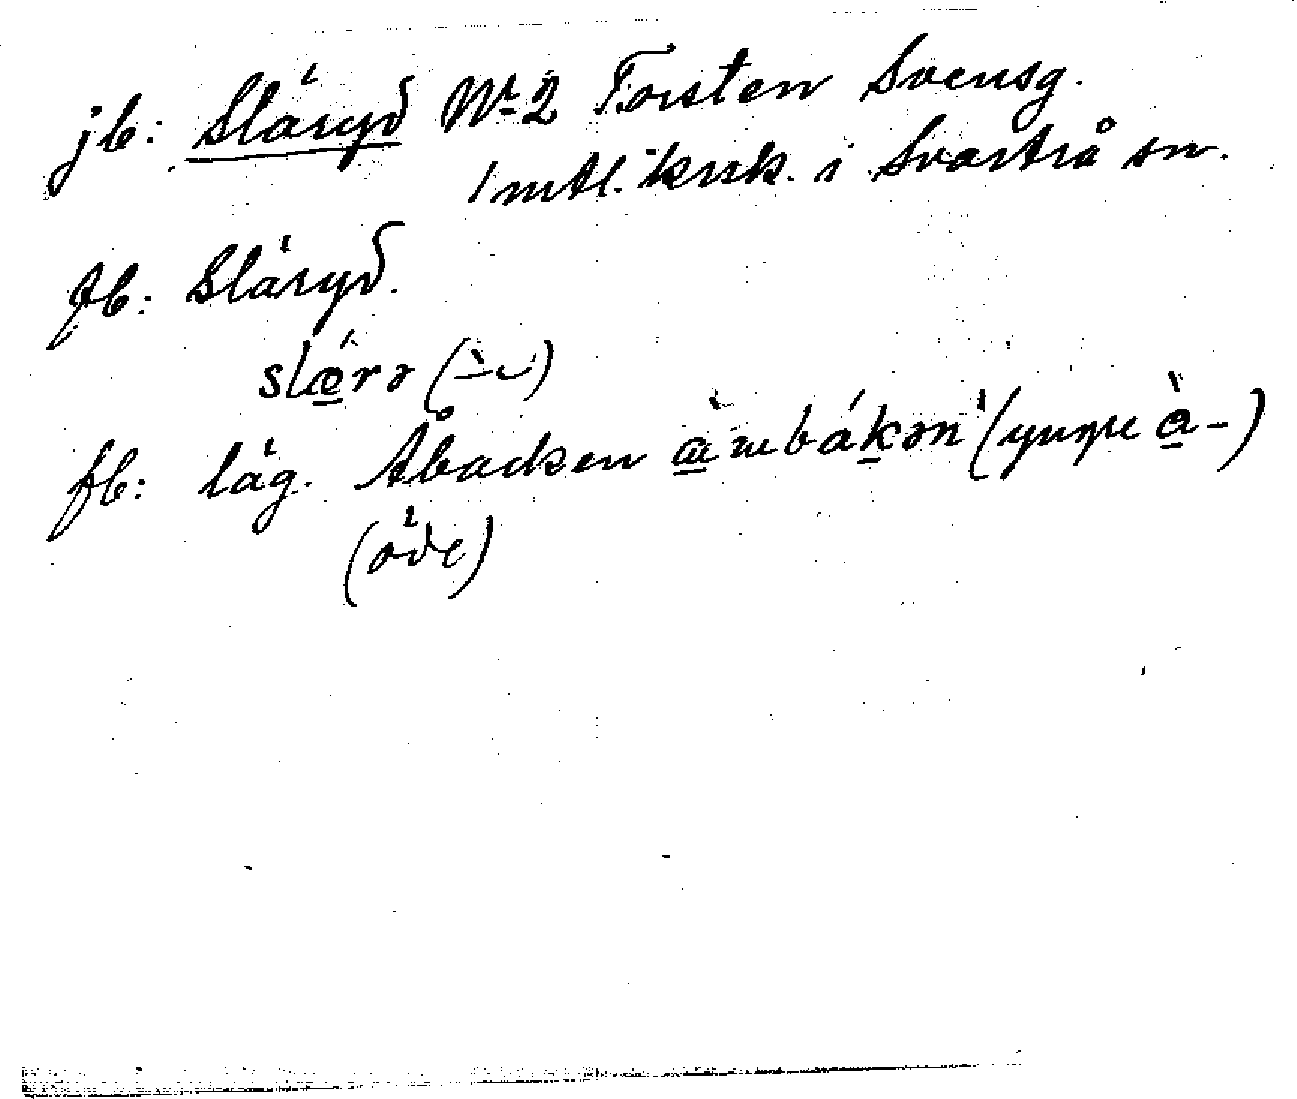 jb: Släryd No 2 Torsten Svensg.
1 mtl. krsk. i Svartrå sn.
fb: Släryd.
slǽrə (`‒⏑)
fb: läg. Åbacken æ̀mbákən (yngre à-)
(öde)